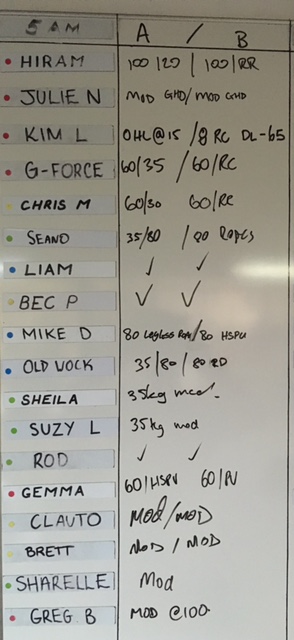 5 AM A / B
HIRAM 100/120 / 100/RR
JULIE N MOD GHD/MOD GHD
KIM L OHL@15 /8 RC DL-65
G-FORCE 60/35 / 60/RC
CHRIS M 60/30 60/RC
SEANO 35/80 / 80 Ropes
LIAM ✓ ✓
BEC P ✓ ✓
MIKE D 80 Legless Rope/80 HSPU
OLD VOCK 35/80/80
SHEILA 35kg mod.
SUZY L 35kg mod
ROD ✓ ✓
GEMMA 60/HSPU 60/
CLAUTO MOD/MOD
BRETT MOD / MOD
SHARELLE Mod
GREG B MOD @100